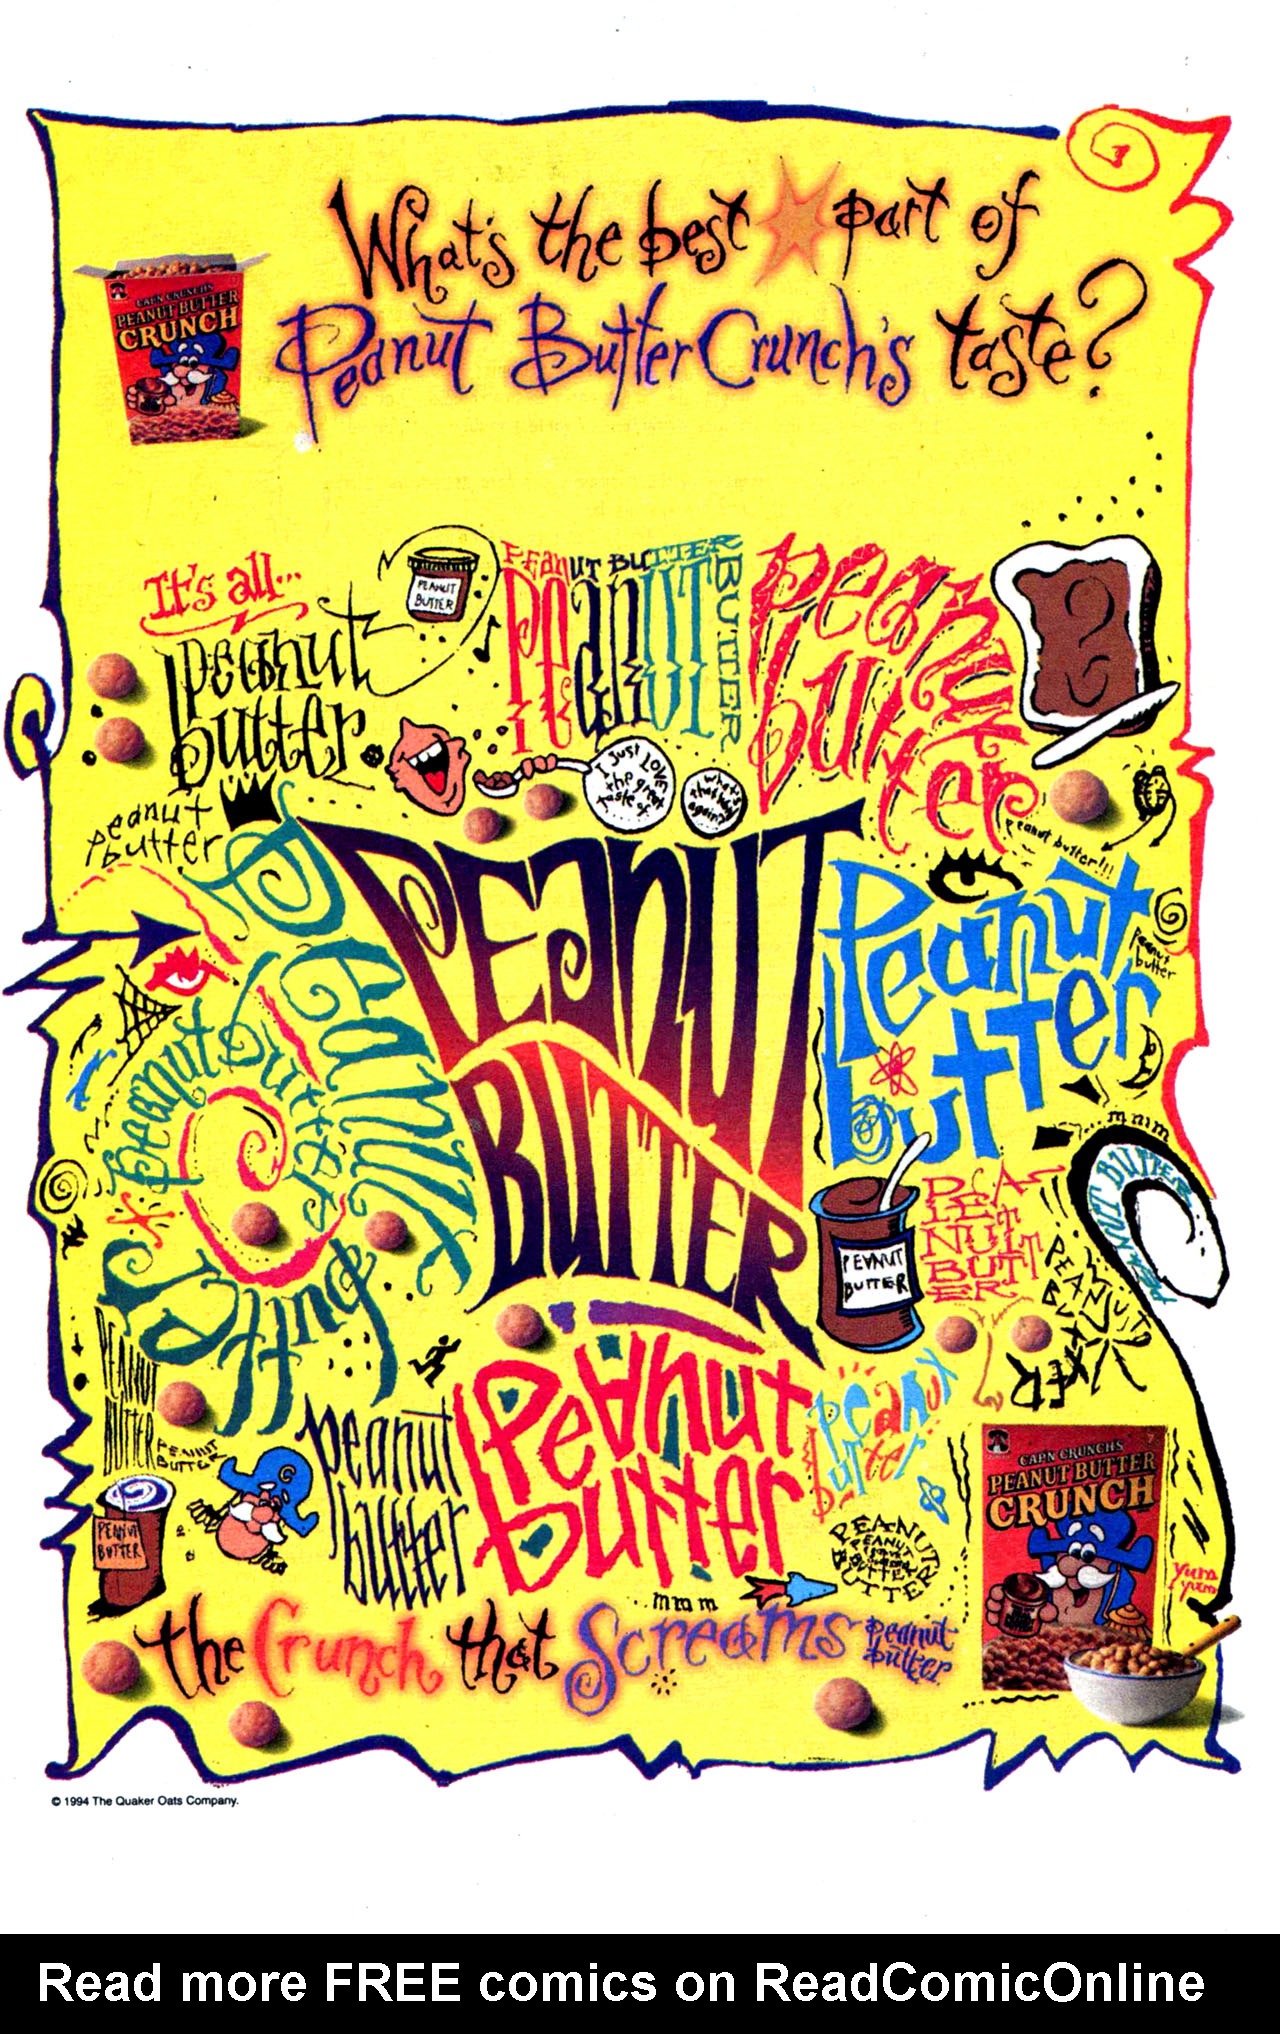 What's the best part of
Peanut Butter Crunch's taste?
CAP'N CRUNCH'S
PEANUT BUTTER
CRUNCH
It's all...
peanut
butter
PEANUT
BUTTER
PEANUT BUTTER
PEANUT
BUTTER
peanut
butter
I just LOVE
the great
taste of
what's
that
again?
peanut
butter
peanut butter!!!
PEANUT
BUTTER
Peanut
butter
Peanut
butter
peanut butter
Peanut
butter
mmm
PEANUT BUTTER
PEANUT
BUTTER
PEA
NUT
BUTT
ER
PEANUT
BUTTER
PEANUT
BUTTER
PEANUT
BUTTER
C
peanut
butter
Peanut
butter
peanut
butter
PEANUT
BUTTER
PEANUT
BUTTER
...mmm
CAP'N CRUNCH'S
PEANUT BUTTER
CRUNCH
Yum
yum
the Crunch that Screams peanut
butter.
© 1994 The Quaker Oats Company.
Read more FREE comics on ReadComicOnline